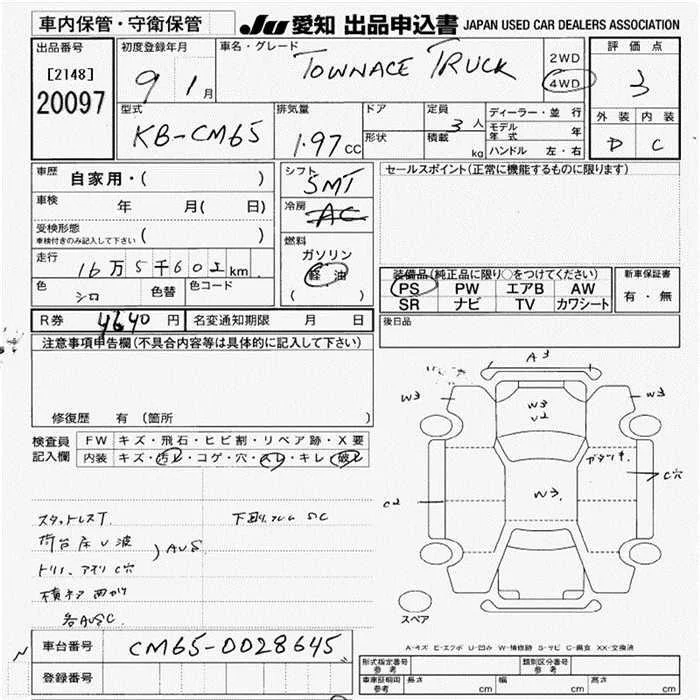 車内保管・守衛保管
JU 愛知 出品申込書 JAPAN USED CAR DEALERS ASSOCIATION
出品番号
[2148]
20097
初度登録年月
9 1月
車名・グレード
TOWNACE TRUCK
2WD
4WD
評価点
3
外装 内装
D C
型式
KB-CM65
排気量
1.97 CC
ドア
形状
定員
3人
積載
kg
ディーラー・並行
モデル年式 年
ハンドル 左・右
車歴
自家用・( )
車検
年 月( 日)
受検形態
車検付きのみ記入して下さい ( )
走行
16万5千602km
色
シロ
色替
色コード
シフト
5MT
冷房
AC
燃料
ガソリン
軽油
( )
セールスポイント(正常に機能するものに限ります)
装備品(純正品に限り○をつけてください)
PS PW エアB AW
SR ナビ TV カワシート
新車保証書
有・無
後日品
R券 4640 円
名変通知期限 月 日
注意事項申告欄(不具合内容等は具体的に記入して下さい)
修復歴 有 (箇所 )
検査員
記入欄
FW キズ・飛石・ヒビ割・リペア跡・X要
内装 キズ・汚レ・コゲ・穴・スレ・キレ・破レ
スタットレスT
荷台床U波
AUS
下回リフレム SC
C穴
各AUSC
A3
W3
W3
W3
U2
W3
C2
C穴
スペア
A-キズ E-エクボ U-凹み W-補修跡 S-サビ C-腐食 XX-交換済
車台番号
CM65-0028645
登録番号
形式指定番号
参考
類別区分番号
参考
車庫証明用
参考
長さ cm
幅 cm
高さ cm